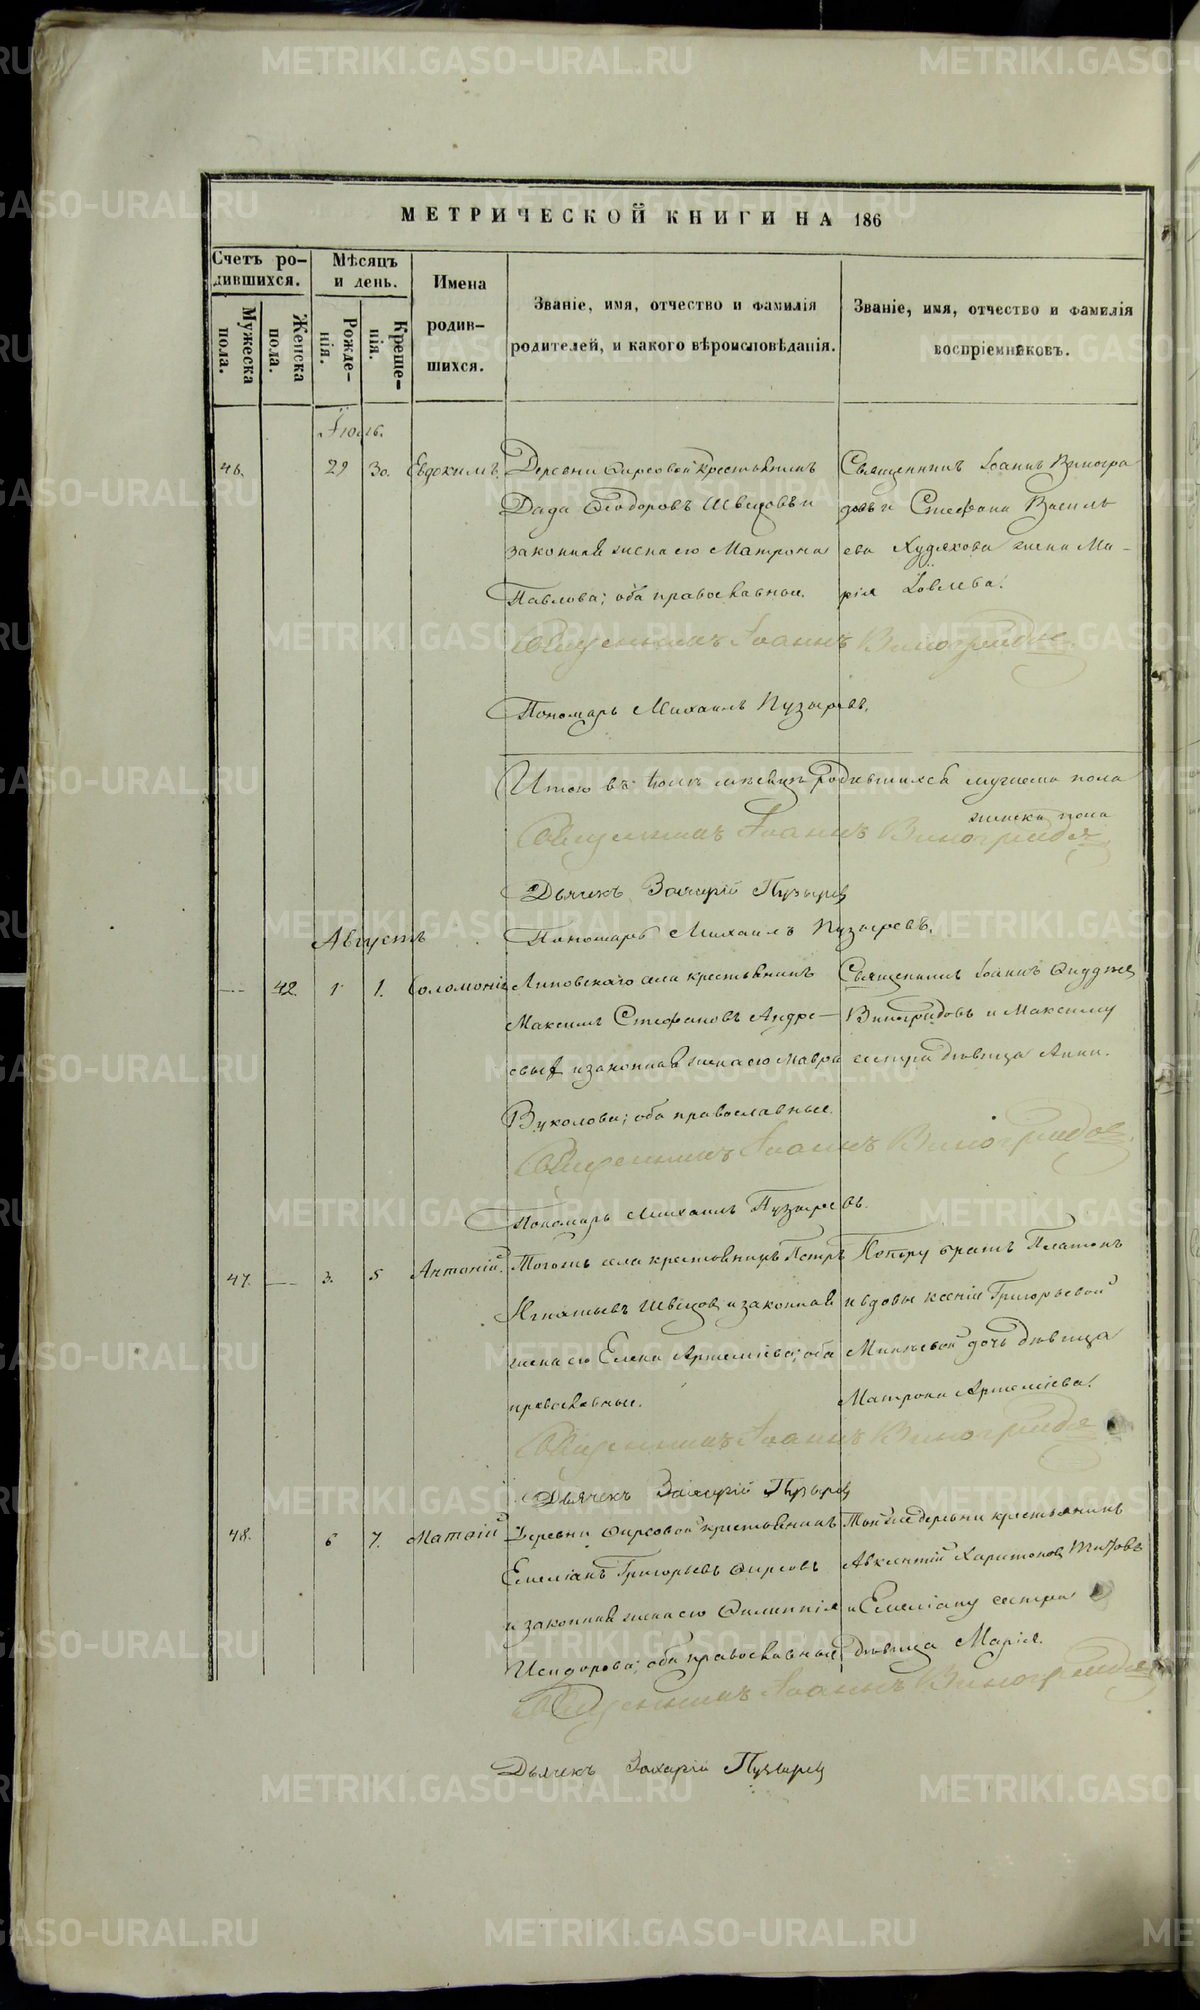 METRIKI.GASO-URAL.RU
МЕТРИЧЕСКОЙ КНИГИ НА 186
Счетъ ро-
дившихся.
Мужеска
пола.
Женска
пола.
Мѣсяцъ
и день.
Рожде-
нія.
Креще-
нія.
Имена
родив-
шихся.
Званіе, имя, отчество и фамилія
родителей, и какого вѣроисповѣданія.
Званіе, имя, отчество и фамилія
воспріемниковъ.
Іюль.
46. 29 30. Евдокимъ.
Деревни Фирсовой крестьянинъ
Дада Ѳеодоровъ Швецовъ и
законная жена его Матрона
Павлова; оба православные.
Священникъ Іоаннъ Виногра
довъ и Стефана Василь
ева Худякова жена Ма-
рія Іовлева.
Священникъ Іоаннъ Виноградов
Пономарь Михаилъ Пузыревъ.
Итого въ Іюлѣ мѣсяцѣ родившихся мужеска пола
женска пола
Священникъ Іоаннъ Виноградов
Дьячекъ Захарій Пузырев
Пономарь Михаилъ Пузыревъ.
Августъ
42. 1 1. Соломонія
Липовскаго села крестьянинъ
Максимъ Стефановъ Андре-
евыхъ и законная жена его Мавра
Вуколова; оба православные.
Священникъ Іоаннъ
Виноградовъ и Максиму
сестра дѣвица Анна.
Священникъ Іоаннъ Виноградов
Пономарь Михаилъ Пузыревъ.
47. 3. 5 Антоній.
Тогожъ села крестьянинъ Петръ
Игнатьевъ Швецов и законная
жена его Елена Артеміева; оба
православные.
Петру братъ Платонъ
и вдовы Ксеніи Григорьевой
дочь дѣвица
Матрона Артеміева.
Священникъ Іоаннъ Виноградов
Дьячекъ Захарій Пузырев
48. 6 7. Матѳій
Деревни Фирсовой крестьянинъ
Емеліанъ Григорьевъ Фирсовъ
и законная жена его Филиппія
Исидорова; оба православные
Той же деревни крестьянинъ
Авксентій Харитонов Титовъ
и Емеліану сестра
дѣвица Марія.
Священникъ Іоаннъ Виноградов
Дьячекъ Захарій Пузырев